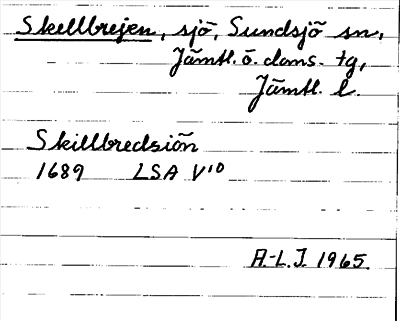 Skellbrejen, sjö, Sundsjö sn,
Jämtl. ö. doms. tg,
Jämtl. l.
Skillbredsiön
1689 LSA V¹⁰
A.-L.J. 1965.